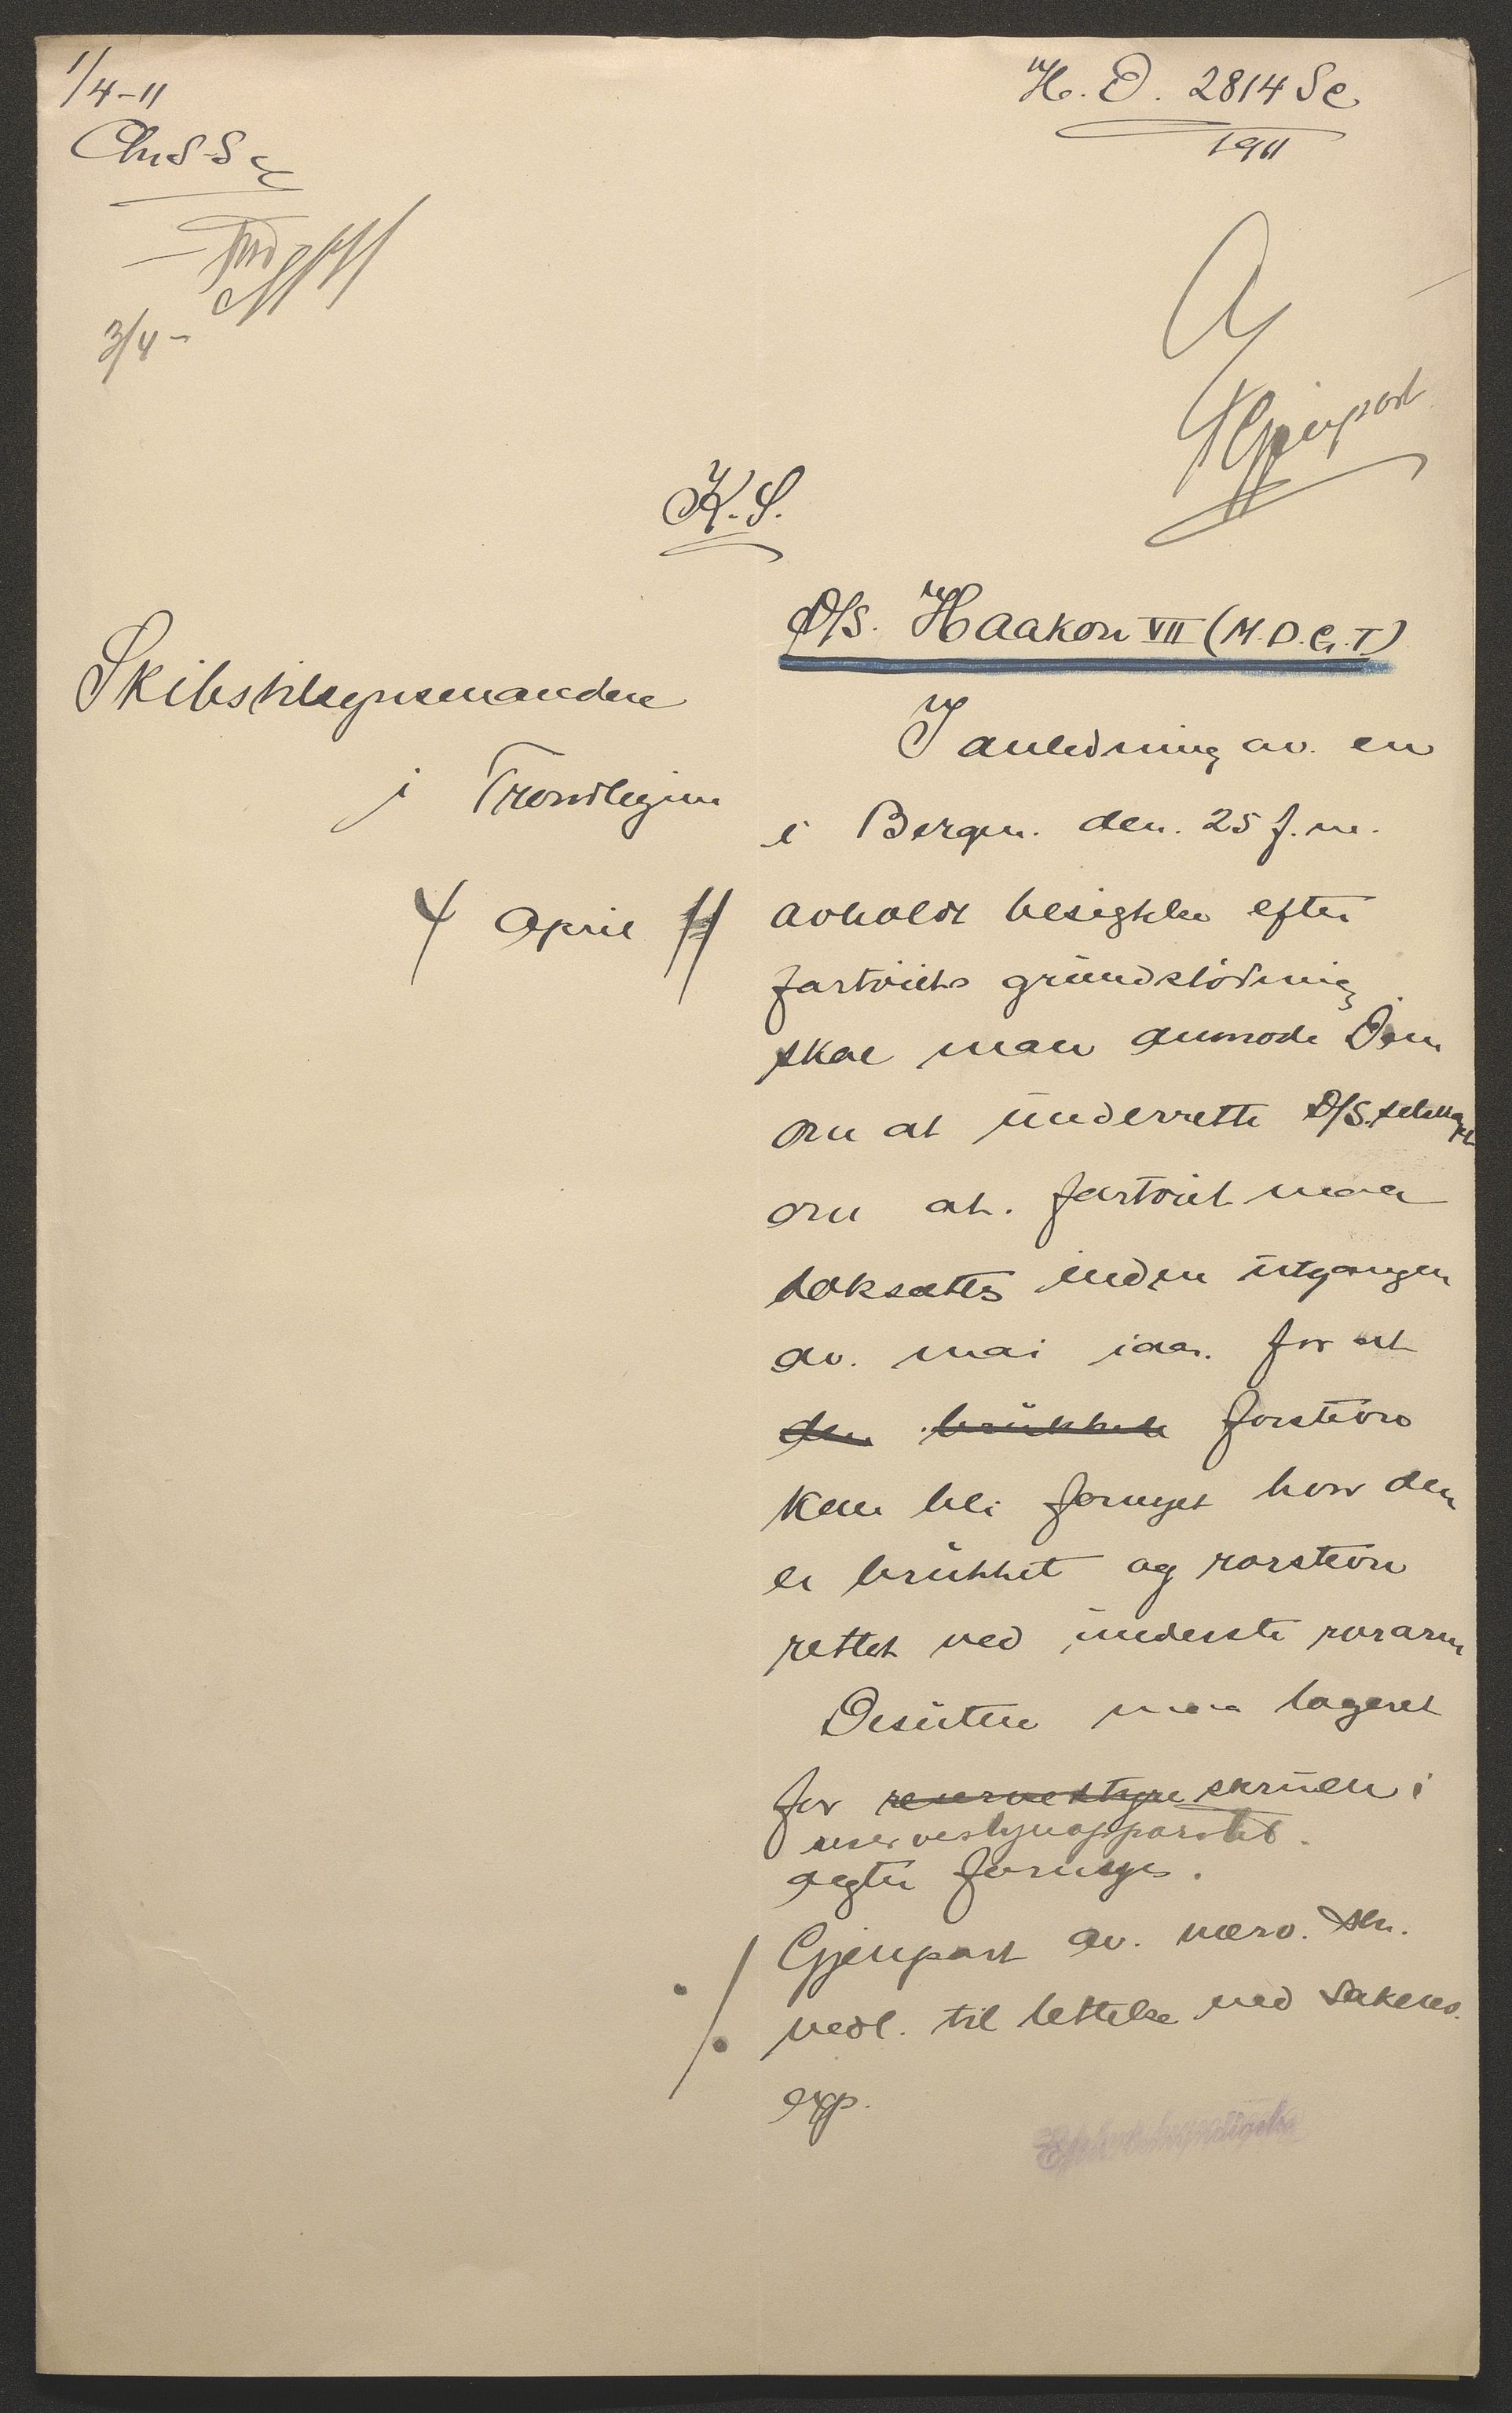 1/4-11
H. D. 2814 Sc
1911
3/4-
Gjenpart
K. S.
D/S. Haakon VII (M.D.G.T.)
Skibstilsynsmændene
i Trondhjem
4 April 11
I anledning av en
i Bergen den 25 f.m.
avholdt besigtelse efter
fartøiets grundstødning
skal man anmode Dem
om at underrette D/S. selskapet
om at fartøiet maa
doksættes inden utgangen
av mai iaar for at
den brukkede forstevn
kan bli fornyet hvor den
er brukket og rorstevn
rettet ved underste rorarm
Desuten maa lageret
for reservestyre skruen i
reservestyreapparatet
agter fornyes.
Gjenpart av nærv. skr.
vedl. til lettelse ved sakens
exp.